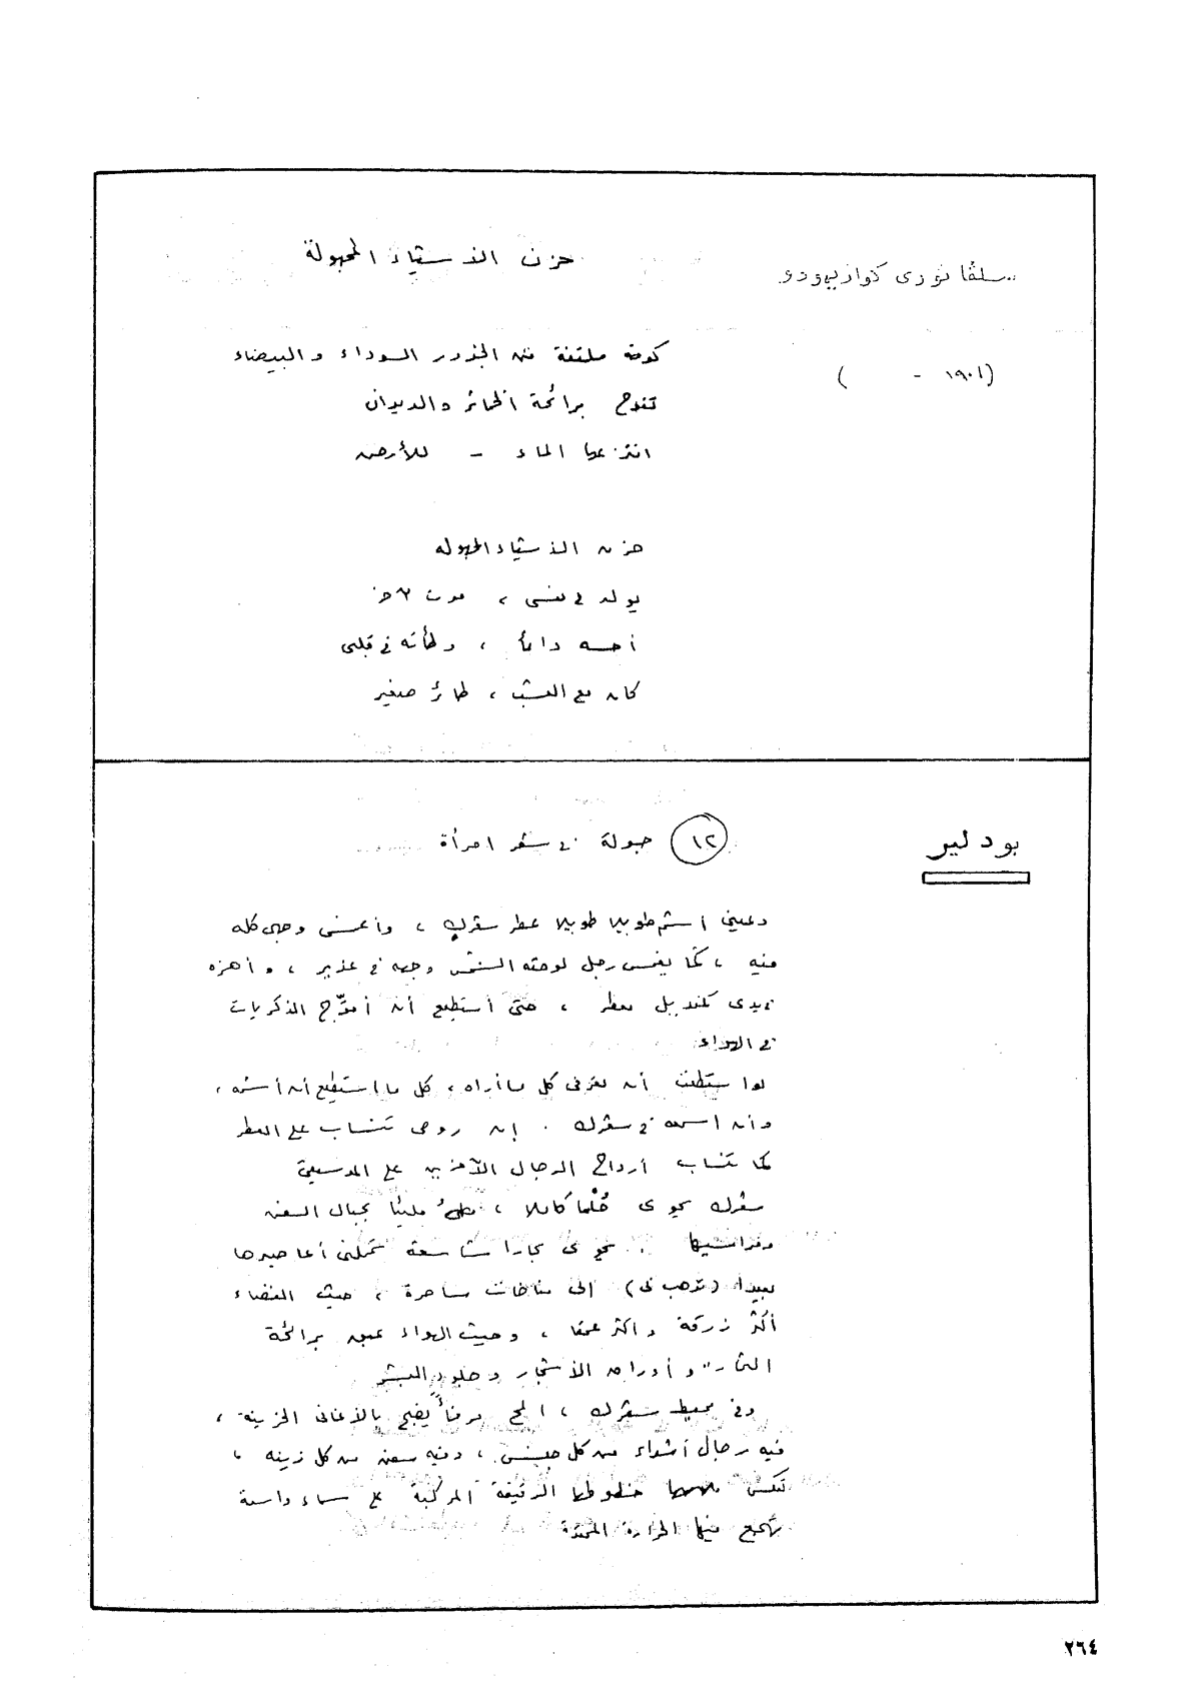 حزن الأشياء المجهولة
سلفاتورى كوازيمودو
(١٩٠١ - )
كومة ملتفة من الجذور السوداء والبيضاء
تفوح برائحة الخمائر والديدان
انتزعها الماء - للأرض
حزن الأشياء المجهوله
يولد فى نفسى ، موت آخر
أحسه دائما ، وكأنه فى قلبى
كان مع العشب ، طائر صغير
بودلير
١٢ جولة فى شعر امرأة
دعينى أشم طويلا طويلا عطر شعرك ، وأغمس وجهى كله
فيه ، كما يغمس رجل لوحته الشمس وجهه فى غدير ، وأهزه
بيدى كمنديل معطر ، حتى أستطيع أن أموّج الذكريات
فى الهواء
لو استطعت أن تعرفى كل ما أراه ، كل ما استطيع أن أشمه ،
وأن اسمعه فى شعرك . إن روحى تنساب على العطر
كما تنساب أرواح الرجال الآخرين على الموسيقى
شعرك يحوى حُلْما كاملا ، مليئا بحبال السفن
يحوى بحارا شاسعة تحملنى أعاصيرها
بعيدا (تذهب بى) إلى مناخات ساحرة ، حيث الفضاء
أكثر زرقة وأكثر عمقا ، وحيث الهواء عبق برائحة
الثمار وأوراق الأشجار وجلود البشر
وفى محيط شعرك ، المح مرفأ يضج بالأغانى الحزينة ،
فيه رجال أشداء من كل جنس ، وفيه سفن من كل زينه ،
تعكس خطوطها الدقيقة المركبة على سماء واسعة
تجمع فيها الحرارة الممتدة
٢٦٤